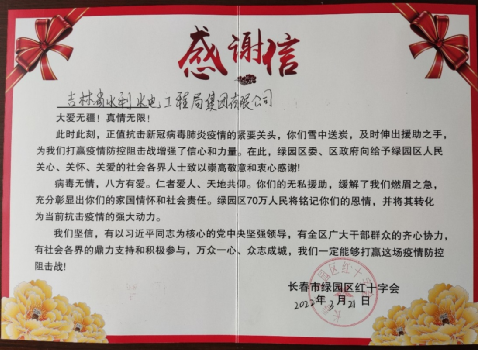 感谢信
吉林省水利水电工程局集团有限公司
大爱无疆！真情无限！
此时此刻，正值抗击新冠病毒肺炎疫情的紧要关头，你们雪中送炭，及时伸出援助之手，
为我们打赢疫情防控阻击战增强了信心和力量。在此，绿园区委、区政府向给予绿园区人民
关心、关怀、关爱的社会各界人士致以崇高敬意和衷心感谢！
病毒无情，八方有爱。仁者爱人、天地共仰。你们的无私援助，缓解了我们燃眉之急，
充分彰显出你们的家国情怀和社会责任。绿园区70万人民将铭记你们的恩情，并将其转化
为当前抗击疫情的强大动力。
我们坚信，有以习近平同志为核心的党中央坚强领导，有全区广大干部群众的齐心协力，
有社会各界的鼎力支持和积极参与，万众一心、众志成城，我们一定能够打赢这场疫情防控
阻击战！
长春市绿园区红十字会
2022年3月21日